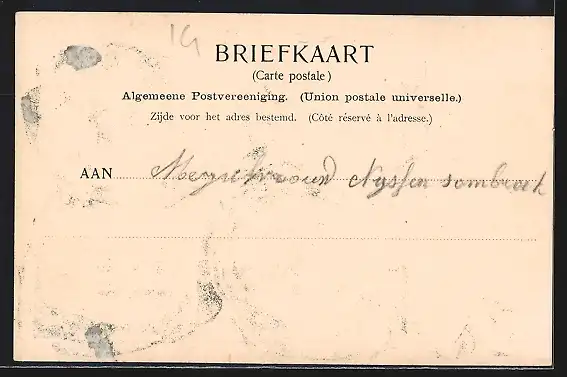 19
BRIEFKAART
(Carte postale)
Algemeene Postvereeniging. (Union postale universelle.)
Zijde voor het adres bestemd. (Côté réservé à l'adresse.)
AAN Nyssen sombreek